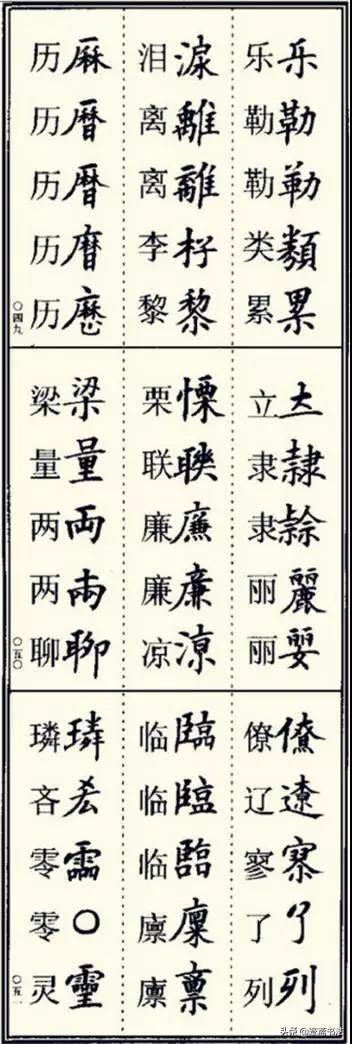 乐
勒 勒
勒
类 類
累 累
泪 淚
离 離
离 離
李 杍
黎 黎
历 厤
历 暦
历 暦
历
历
〇四九
立
隶 隷
隶
丽 麗
丽
栗 慄
联
廉
廉 廉
凉 涼
梁 梁
量 量
两 両
两
聊 聊
〇五〇
僚 僚
辽 遼
寥
了 了
列 列
临 臨
临 臨
临 臨
廪 廩
廪 稟
璘 璘
吝
零
零 〇
灵 靈
〇五一
头条